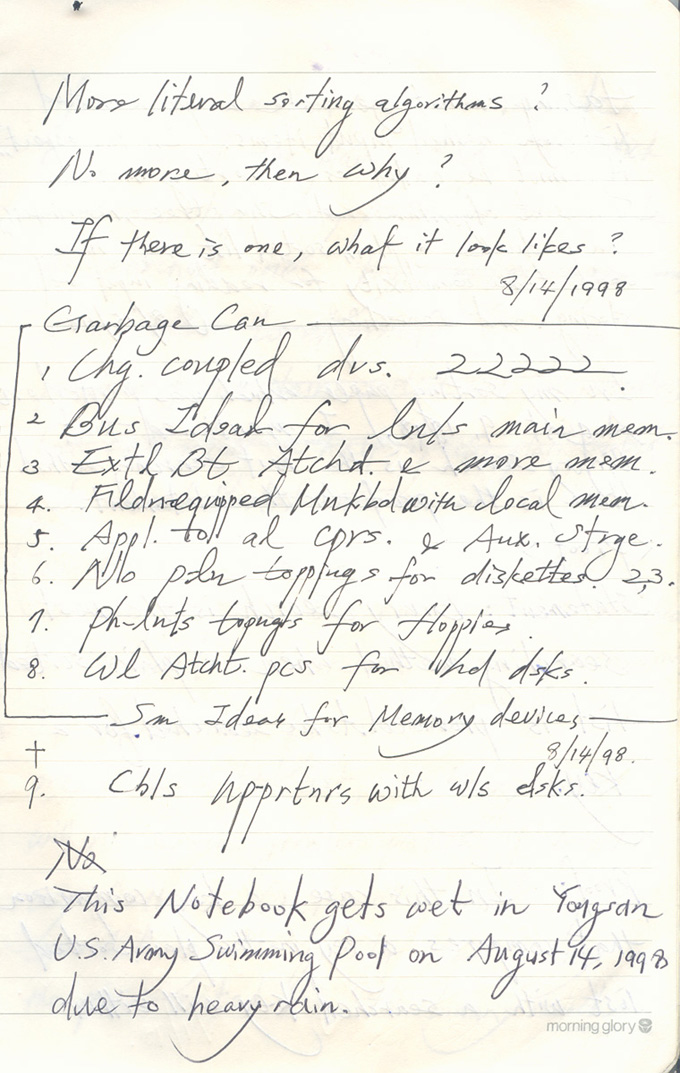 More literal sorting algorithms?
No more, then why?
If there is one, what it look likes?
8/14/1998
Garbage Can
1 Chg. coupled dvs. 22222.
2 Bus Ideal for main mem.
3 Extl Bt Atchd. & more mem.
4. with local mem.
5. Appl. to cprs. & Aux. Strge.
6. No toppings for diskettes. 2,3.
7. for floppies.
8. Wl Atcht. pcs for hd dsks.
Sm Ideas for Memory devices
8/14/98.
+
9. Cbls with wls dsks.
No
This Notebook gets wet in Yongsan
U.S. Army Swimming Pool on August 14, 1998
due to heavy rain.
morning glory